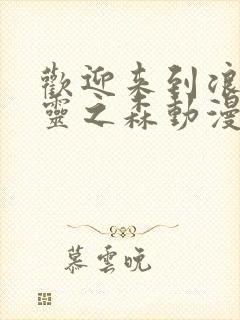 歡迎来到浪
靈之森動漫
慕雲晚